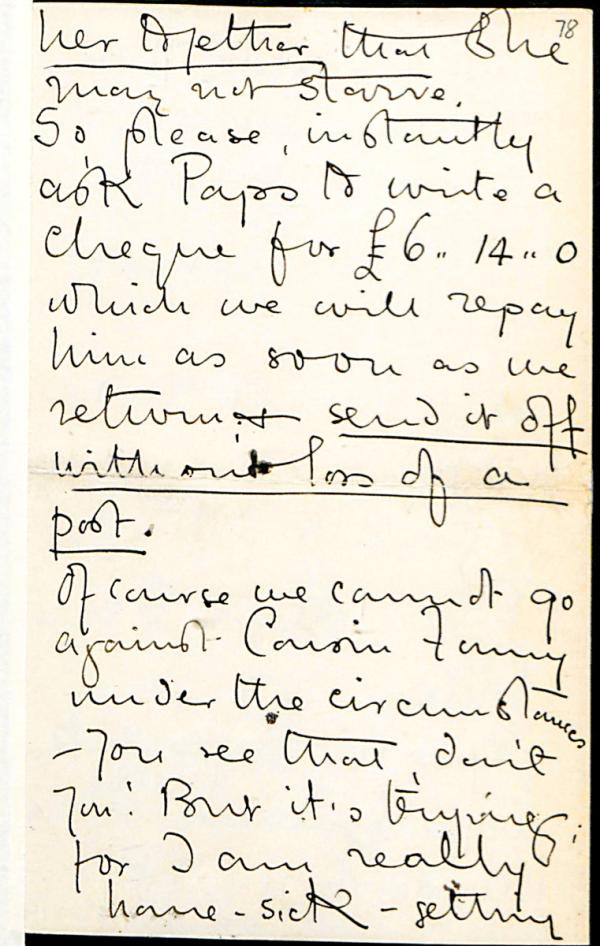 78
her together that She
may not starve.
So, please, instantly
ask Papa to write a
cheque for £6.. 14.. 0
which we will repay
him as soon as we
return & send it off
without loss of a
post.
Of course we cannot go
against Cousin Fanny
under the circumstances
- You see that, don't
you? But it's trying;
for I am really
home-sick - getting